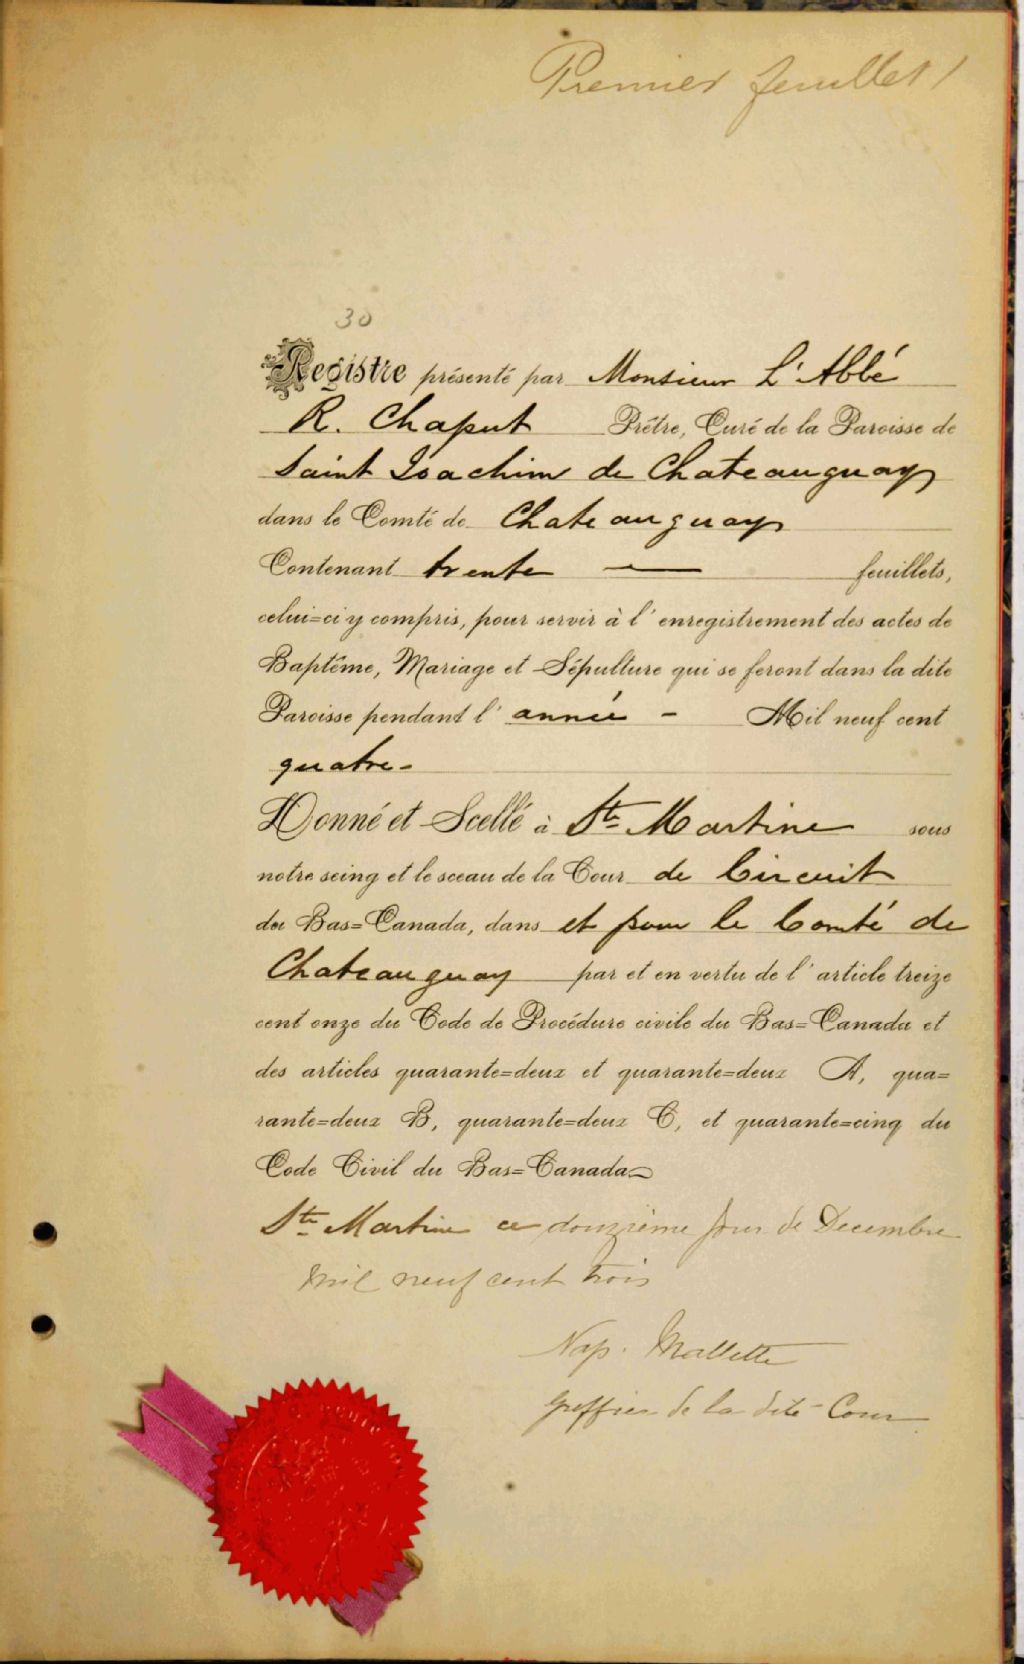 Premier feuillet 1
30
Registre présenté par Monsieur L'Abbé
R. Chaput Prêtre, Curé de la Paroisse de
Saint Joachim de Chateauguay
dans le Comté de Chateauguay
Contenant trente — feuillets,
celui=ci y compris, pour servir à l'enregistrement des actes de
Baptême, Mariage et Sépulture qui se feront dans la dite
Paroisse pendant l'année - Mil neuf cent
quatre-
Donné et Scellé à Ste Martine sous
notre seing et le sceau de la Cour de Circuit
du Bas=Canada, dans et pour le Comté de
Chateauguay par et en vertu de l'article treize
cent onze du Code de Procédure civile du Bas=Canada et
des articles quarante=deux et quarante=deux A, qua=
rante=deux B, quarante=deux C, et quarante=cinq du
Code Civil du Bas=Canada
Ste Martine ce douzième jour de Decembre
Mil neuf cent trois
Nap. Mallette
Greffier de la dite Cour